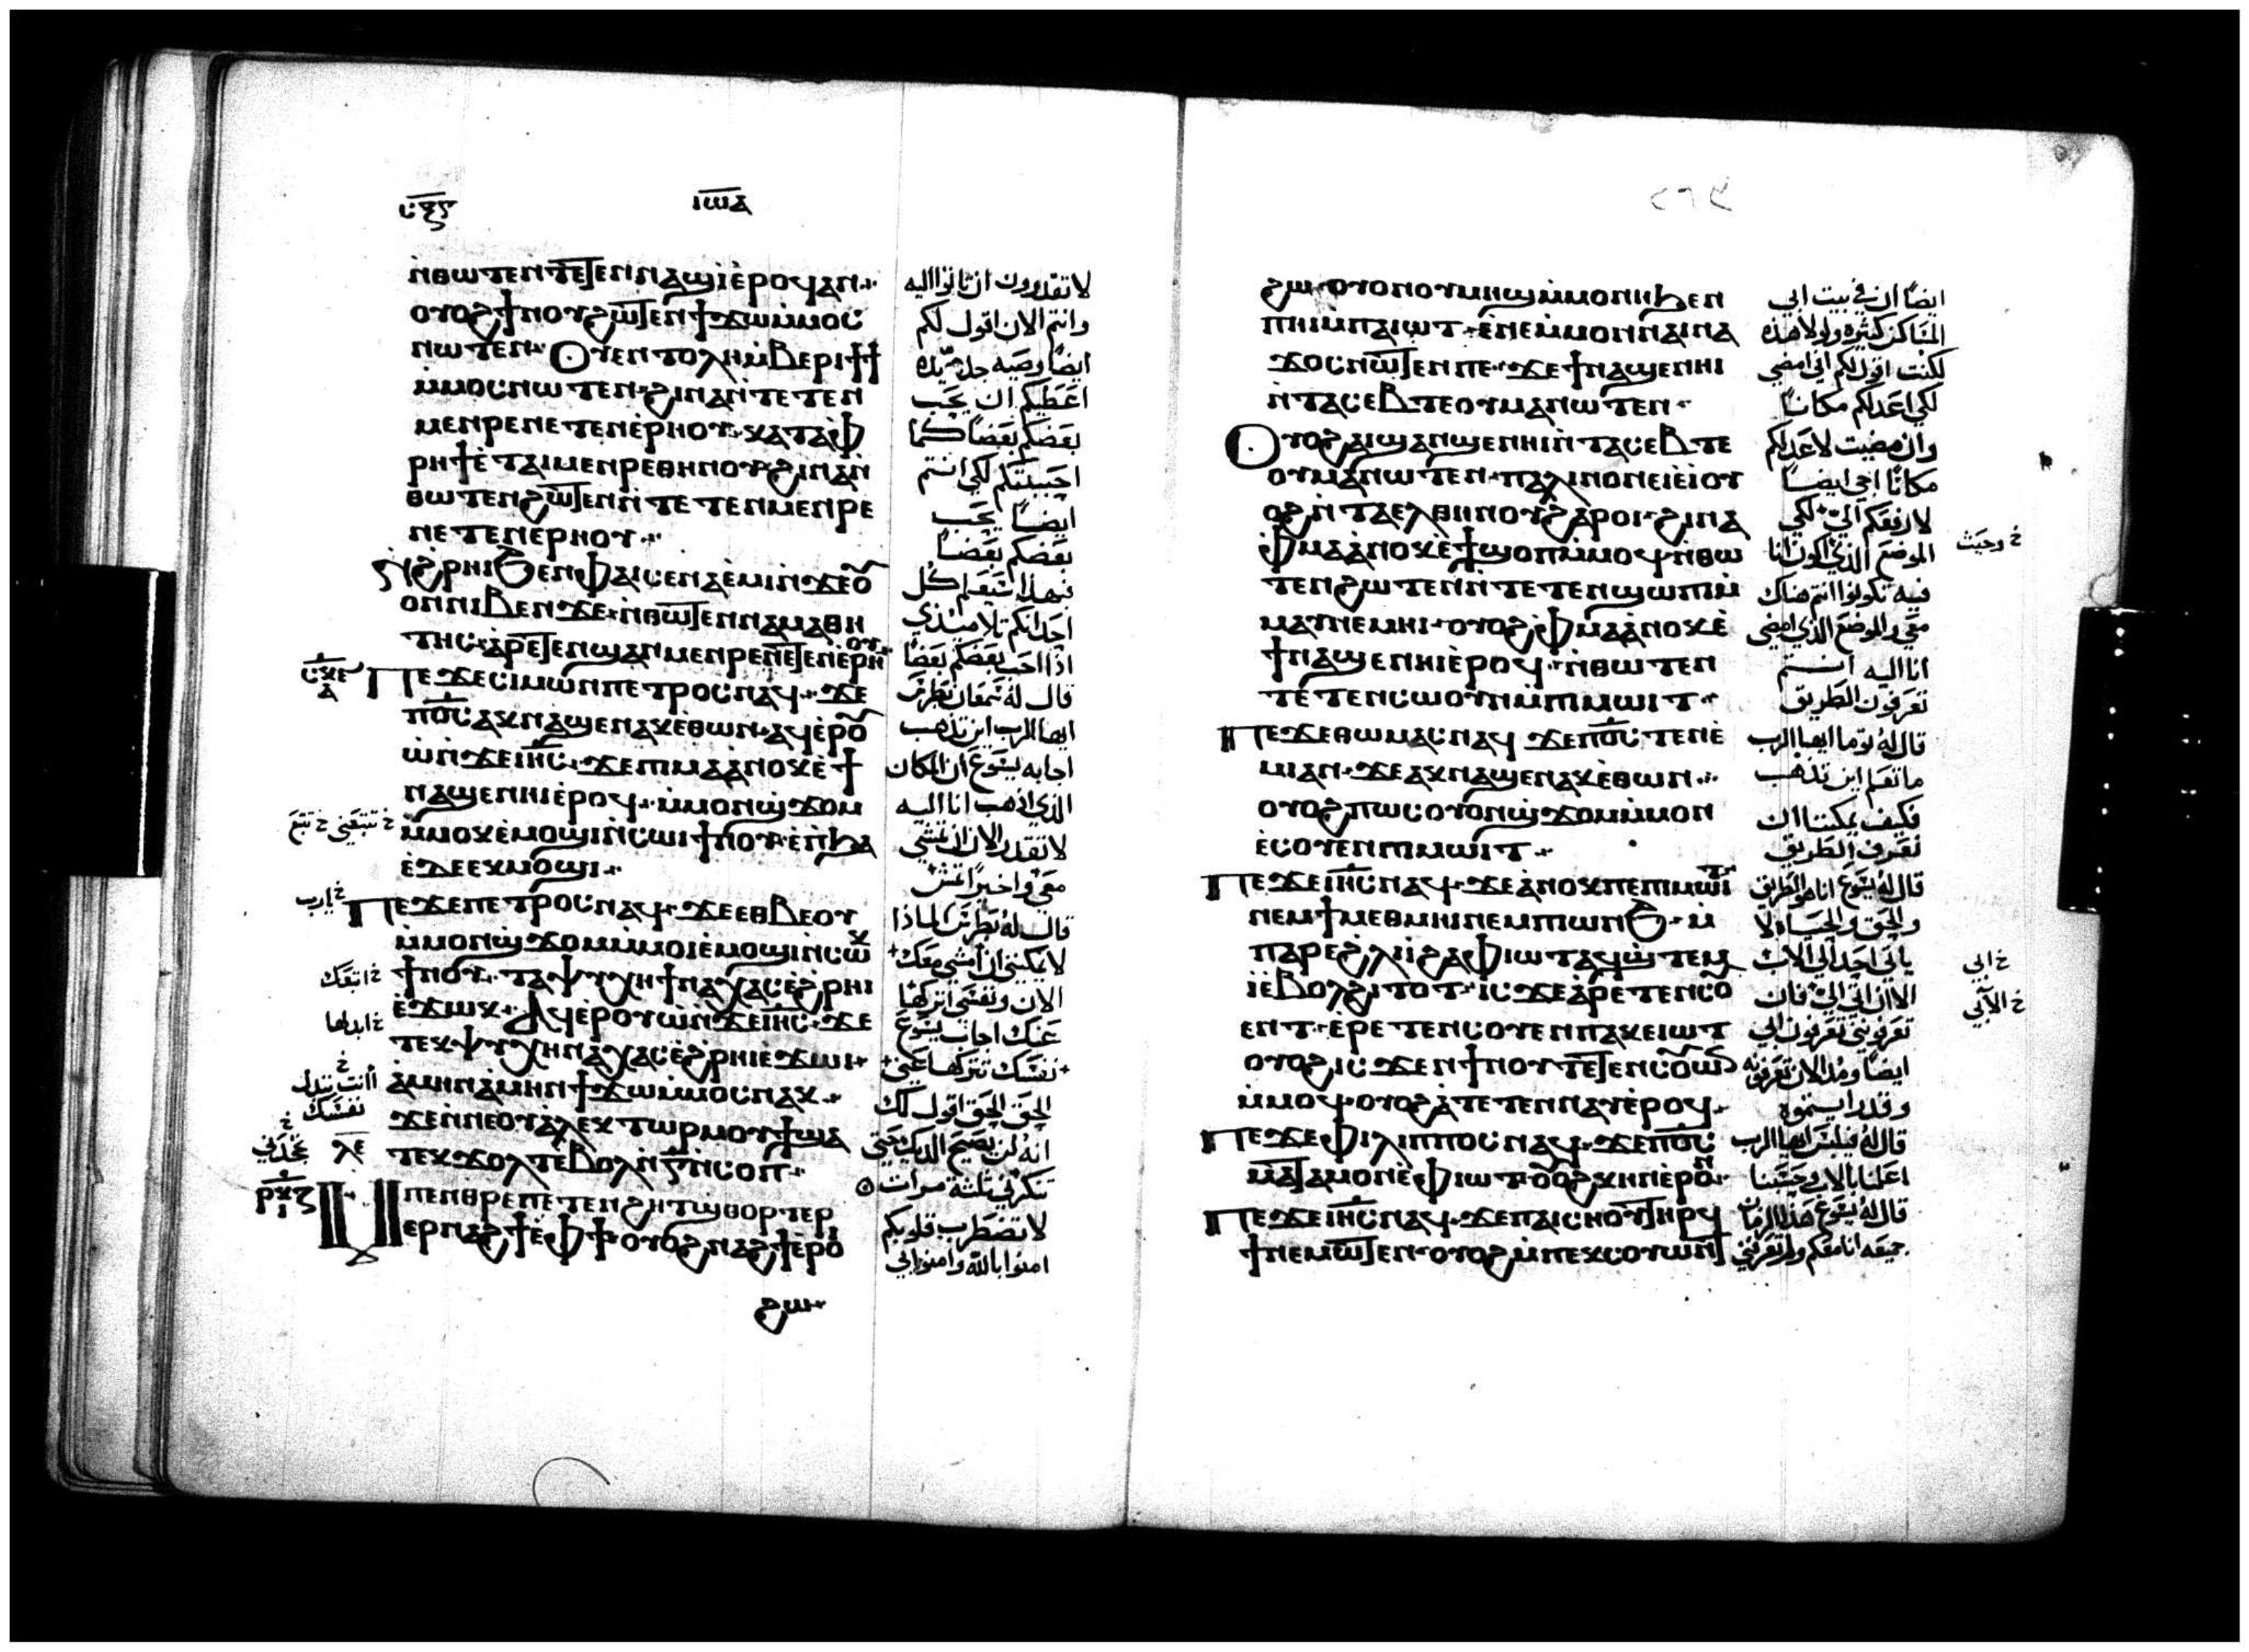 ⲓⲱⲁ
ⲛ̀ⲑⲱⲧⲉⲛ ⲧⲉⲧⲉⲛⲛⲁϣⲓ̀ ⲉ̀ⲣⲟϥ ⲁⲛ
ⲟⲩⲟϩ ϯⲛⲟⲩ ϩⲱⲧⲉⲛ ϯϫⲱ ⲙ̀ⲙⲟⲥ
ⲛⲱⲧⲉⲛ Ⲟⲩⲉⲛⲧⲟⲗⲏ ⲙ̀ⲃⲉⲣⲓ ϯϯ
ⲙ̀ⲙⲟⲥ ⲛⲱⲧⲉⲛ ϩⲓⲛⲁ ⲛ̀ⲧⲉⲧⲉⲛ
ⲙⲉⲛⲣⲉ ⲛⲉⲧⲉⲛⲉ̀ⲣⲏⲟⲩ ⲕⲁⲧⲁ ⲫ̀
ⲣⲏϯ ⲉ̀ⲧⲁⲓⲙⲉⲛⲣⲉ ⲑⲏⲛⲟⲩ ϩⲓⲛⲁ ⲛ̀
ⲑⲱⲧⲉⲛ ϩⲱⲧⲉⲛ ⲛ̀ⲧⲉⲧⲉⲛⲙⲉⲛⲣⲉ
ⲛⲉⲧⲉⲛⲉ̀ⲣⲏⲟⲩ
ⲛ̀ϩ̀ⲣⲏⲓ ϧⲉⲛ ⲫⲁⲓ ⲥⲉⲛⲁⲉ̀ⲙⲓ ⲛ̀ϫⲉ ⲟⲩ
ⲟⲛ ⲛⲓⲃⲉⲛ ϫⲉ ⲛ̀ⲑⲱⲧⲉⲛ ⲛⲁⲙⲁⲑⲏ
ⲧⲏⲥ ⲁ̀ⲣⲉⲧⲉⲛϣⲁⲛⲙⲉⲛⲣⲉ ⲛⲉⲧⲉⲛⲉ̀ⲣⲏⲟⲩ
Ⲡⲉϫⲉ ⲥⲓⲙⲱⲛ ⲡⲉⲧⲣⲟⲥ ⲛⲁϥ ϫⲉ
ⲡⲟ̅ⲥ̅ ⲁⲕⲛⲁϣⲉⲛⲁⲕ ⲉ̀ⲑⲱⲛ ⲁϥⲉ̀ⲣⲟⲩ
ⲱ̀ ⲛ̀ϫⲉ ⲓⲏ̅ⲥ̅ ϫⲉ ⲡⲓⲙⲁ ⲁ̀ⲛⲟⲕ ⲉ̀ϯ
ⲛⲁϣⲉⲛⲏⲓ ⲉ̀ⲣⲟϥ ⲙ̀ⲙⲟⲛ ϣ̀ϫⲟⲙ
ⲙ̀ⲙⲟⲕ ⲉ̀ⲙⲟϣⲓ ⲛ̀ⲥⲱⲓ ϯⲛⲟⲩ ⲉ̀ⲡϧⲁ
ⲉ̀ ⲇⲉ ⲉⲕⲙⲟϣⲓ
Ⲡⲉϫⲉ ⲡⲉⲧⲣⲟⲥ ⲛⲁϥ ϫⲉ ⲉⲑⲃⲉ ⲟⲩ
ⲙ̀ⲙⲟⲛ ϣ̀ϫⲟⲙ ⲙ̀ⲙⲟⲓ ⲉ̀ⲙⲟϣⲓ ⲛ̀ⲥⲱⲕ
ϯⲛⲟⲩ ⲧⲁⲯⲩⲭⲏ ϯⲛⲁⲭⲁⲥ ⲉ̀ϩ̀ⲣⲏⲓ
ⲉ̀ϫⲱⲕ Ⲁϥⲉ̀ⲣⲟⲩⲱ̀ ⲛ̀ϫⲉ ⲓⲏ̅ⲥ̅ ϫⲉ
ⲧⲉⲕⲯⲩⲭⲏ ⲭⲛⲁⲭⲁⲥ ⲉ̀ϩ̀ⲣⲏⲓ ⲉ̀ϫⲱⲓ
ⲁ̀ⲙⲏⲛ ⲁ̀ⲙⲏⲛ ϯϫⲱ ⲙ̀ⲙⲟⲥ ⲛⲁⲕ
ϫⲉ ⲛ̀ⲛⲉ ⲟⲩⲁ̀ⲗⲉⲕⲧⲱⲣ ⲙⲟⲩϯ ϣⲁ
ⲧⲉⲕϫⲟⲗⲧ ⲉ̀ⲃⲟⲗ ⲛ̀ⲅ̅ ⲛ̀ⲥⲟⲡ
Ⲙ̀ⲡⲉⲛⲑⲣⲉ ⲡⲉⲧⲉⲛϩⲏⲧ ϣ̀ⲑⲟⲣⲧⲉⲣ
ⲛⲁϩϯ ⲉ̀ⲫϯ ⲟⲩⲟϩ ⲛⲁϩϯ ⲉ̀ⲣⲟⲓ
ϩⲱ
لا تقدرون ان تاتوا اليه
وانتم الان اقول لكم
ايضاً وصيه جديده
اعطيكم ان يحب
بعضكم بعضاً كما
احببتكم لكي انتم
ايضاً يحب
بعضكم بعضاً
فبهذا سيعلم كل
احد انكم تلاميذي
اذا احب بعضكم بعضاً
قال له سمعان بطرس
ايها الرب اين تذهب
اجابه يسوع ان المكان
الذي اذهب انا اليه
لا تقدر الان ان تمشي
معي واخيراً تمش
قال له بطرس لماذا
لا يمكنني ان امشي معك
الان ونفسي اتركها
عنك اجاب يسوع
نفسك تتركها عني
الحق الحق اقول لك
انه لن يصيح الديك حتى
تنكرني ثلثة مرات
لا تضطرب قلوبكم
امنوا بالله وامنوا بي
خ تتبعني خ تتبع
خ يارب
خ اتبعك
خ ابدلها
خ اانت تبدل
نفسك
خ تجحدني
ⲗⲉ
ϩⲱ ⲟⲩⲟⲛ ⲟⲩⲙⲏϣ ⲙ̀ⲙⲟⲛⲏ ϧⲉⲛ
ⲡⲏⲓ ⲙ̀ⲡⲁⲓⲱⲧ ⲉ̀ⲛⲉ ⲙ̀ⲙⲟⲛ ⲛⲁⲓⲛⲁ
ϫⲟⲥ ⲛⲱⲧⲉⲛ ⲡⲉ ϫⲉ ϯⲛⲁϣⲉⲛⲏⲓ
ⲛ̀ⲧⲁⲥⲉⲃⲧⲉ ⲟⲩⲙⲁ ⲛⲱⲧⲉⲛ
Ⲟⲩⲟϩ ⲁⲓϣⲁⲛϣⲉⲛⲏⲓ ⲛ̀ⲧⲁⲥⲉⲃⲧⲉ
ⲟⲩⲙⲁ ⲛⲱⲧⲉⲛ ⲡⲁⲗⲓⲛ ⲟⲛ ⲉⲓⲉ̀ⲓ̀ ⲟⲩ
ⲟϩ ⲛ̀ⲧⲁⲉⲗ ⲑⲏⲛⲟⲩ ϩⲁⲣⲟⲓ ϩⲓⲛⲁ
ⲫ̀ⲙⲁ ⲁ̀ⲛⲟⲕ ⲉ̀ϯϣⲟⲡ ⲙ̀ⲙⲟϥ ⲛ̀ⲑⲱ
ⲧⲉⲛ ϩⲱⲧⲉⲛ ⲛ̀ⲧⲉⲧⲉⲛϣⲱⲡⲓ ⲙ̀
ⲙⲁⲩ ⲛⲉⲙⲏⲓ ⲟⲩⲟϩ ⲫ̀ⲙⲁ ⲁ̀ⲛⲟⲕ ⲉ̀
ϯⲛⲁϣⲉⲛⲏⲓ ⲉ̀ⲣⲟϥ ⲛ̀ⲑⲱⲧⲉⲛ
ⲧⲉⲧⲉⲛⲥⲱⲟⲩⲛ ⲙ̀ⲡⲓⲙⲱⲓⲧ
Ⲡⲉϫⲉ ⲑⲱⲙⲁⲥ ⲛⲁϥ ϫⲉ ⲡⲟ̅ⲥ̅ ⲧⲉⲛⲉ̀
ⲙⲓ ⲁⲛ ϫⲉ ⲁⲕⲛⲁϣⲉⲛⲁⲕ ⲉ̀ⲑⲱⲛ
ⲟⲩⲟϩ ⲡⲱⲥ ⲟⲩⲟⲛ ϣ̀ϫⲟⲙ ⲙ̀ⲙⲟⲛ
ⲉ̀ⲥⲟⲩⲉⲛ ⲡⲓⲙⲱⲓⲧ
Ⲡⲉϫⲉ ⲓⲏ̅ⲥ̅ ⲛⲁϥ ϫⲉ ⲁ̀ⲛⲟⲕ ⲡⲉ ⲡⲓⲙⲱⲓⲧ
ⲛⲉⲙ ϯⲙⲉⲑⲙⲏⲓ ⲛⲉⲙ ⲡⲓⲱⲛϧ ⲙ̀
ⲡⲁⲣⲉ ϩ̀ⲗⲓ ⲓ̀ ϩⲁ ⲫⲓⲱⲧ ⲁϥϣ̀ⲧⲉⲙ
ⲓ̀ ⲉ̀ⲃⲟⲗ ϩⲓⲧⲟⲧ ⲓⲥϫⲉ ⲁ̀ⲣⲉⲧⲉⲛⲥⲟⲩ
ⲉⲛⲧ ⲉ̀ⲣⲉⲧⲉⲛⲥⲟⲩⲉⲛ ⲡⲁⲕⲉⲓⲱⲧ
ⲟⲩⲟϩ ⲓⲥϫⲉⲛ ϯⲛⲟⲩ ⲧⲉⲧⲉⲛⲥⲱⲟⲩⲛ
ⲙ̀ⲙⲟϥ ⲟⲩⲟϩ ⲁ̀ⲧⲉⲧⲉⲛⲛⲁⲩ ⲉ̀ⲣⲟϥ
Ⲡⲉϫⲉ ⲫⲓⲗⲓⲡⲡⲟⲥ ⲛⲁϥ ϫⲉ ⲡⲟ̅ⲥ̅
ⲙⲁⲧⲁⲙⲟⲛ ⲉ̀ⲫⲓⲱⲧ ⲟⲩⲟϩ ⲕⲏⲛ ⲉ̀ⲣⲟⲛ
Ⲡⲉϫⲉ ⲓⲏ̅ⲥ̅ ⲛⲁϥ ϫⲉ ⲡⲁⲓⲥⲏⲟⲩ ⲧⲏⲣϥ
ϯⲛⲉⲙⲱⲧⲉⲛ ⲟⲩⲟϩ ⲙ̀ⲡⲉⲕⲥⲟⲩⲱⲛⲧ
ايضاً ان في بيت ابي
المساكن كثيره ولولا هذه
لكنت اقول لكم اني امضي
لكي اعد لكم مكاناً
وان مضيت لاعد لكم
مكاناً اجي ايضاً
لارفعكم اليّ لكي
الموضع الذي اكون انا
فيه تكونوا انتم هناك
معي والموضع الذي امضي
انا اليه انتم
تعرفون الطريق
قال له توما ايها الرب
ما نعلم اين تذهب
فكيف يمكننا ان
نعرف الطريق
قال له يسوع انا هو الطريق
والحق والحياه لا
ياتي احد الي الاب
الا ان اتي الي فان
تعرفوني تعرفون ابي
ايضاً ومذ الان تعرفونه
وقد رايتموه
قال له فيلبس ايها الرب
اعلمنا بالاب وحسبنا
قال له يسوع هذا الزمان
جميعه انا معكم ولم تعرفني
خ وحيث
خ ابي
خ الا بي